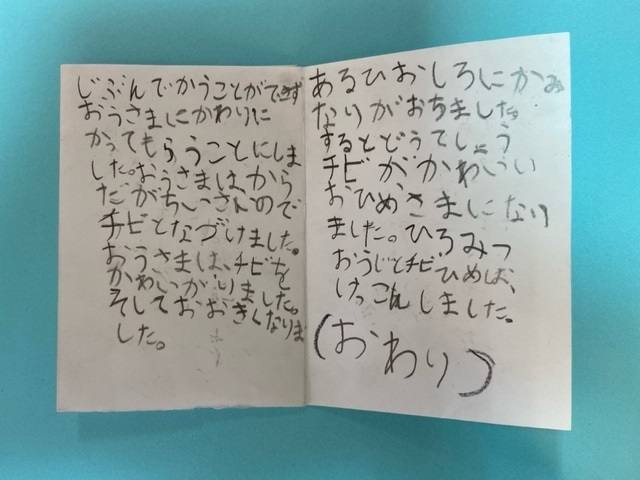 じぶんでかうことができず
おうさまにかわりに
かってもらうことにしま
した。おうさまは、から
だがちいさいので
チビとなづけました。
おうさまは、チビを
かわいがりました。
そしておおきくなりま
した。
あるひおしろにかみ
なりがおちました。
するとどうでしょう
チビが、かわいい
おひめさまになり
ました。ひろみつ
おうじとチビひめは、
けっこんしました。
(おわり)